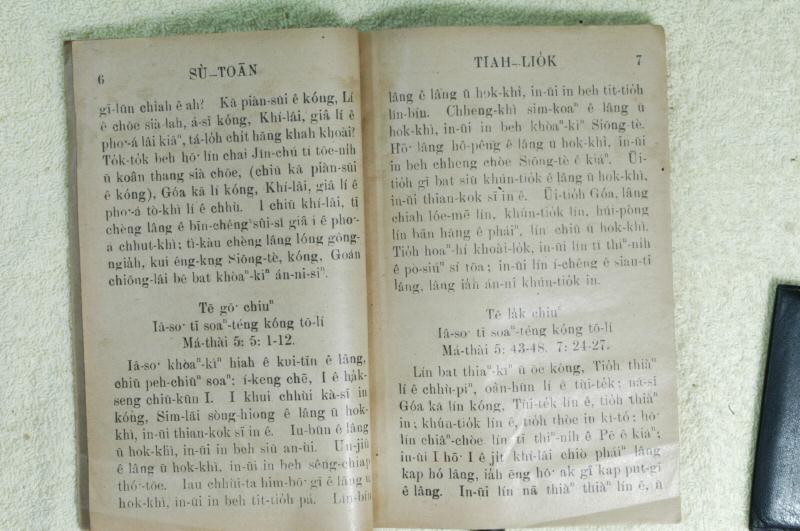 6 SÙ-TOĀN
gī-lūn chiah ê ah? Kā piàn-sūi ê kóng, Lí
ê chōe sià lah, á-sī kóng, Khí-lâi, giâ lí ê
pho·-á lâi kiâⁿ, tá-lo̍h chi̍t hāng khah khoài?
To̍k-to̍k beh hō· lín chai Jîn-chú tī tōe-nih
ū koân thang sià chōe, (chiū kā piàn-sūi
ê kóng), Góa kā lí kóng, Khí-lâi, giâ lí ê
pho·-á tò-khì lí ê chhù. I chiū khí-lâi, tī
chèng lâng ê bīn-chêng sûi-sî giâ i ê pho·-
á chhut-khì; tì-kàu chèng lâng lóng gông-
ngia̍h, kui êng-kng Siōng-tè, kóng, Goán
chiông-lâi bē bat khòaⁿ-kìⁿ án-ni-siⁿ.
Tē gō· chiuⁿ
Iâ-so· tī soaⁿ-téng kóng tō-lí
Má-thài 5: 5: 1-12.
Iâ-so· khòaⁿ-kìⁿ hiah ê kui-tīn ê lâng,
chiū peh-chiūⁿ soaⁿ; í-keng chē, I ê ha̍k-
seng chiū-kūn I. I khui chhùi kà-sī in
kóng, Sim-lāi sòng-hiong ê lâng ū hok-
khì, in-ūi thian-kok sī in ê. Iu-būn ê lâng
ū hok-khì, in-ūi in beh siū an-ùi. Un-jiû
ê lâng ū hok-khì, in-ūi in beh sêng-chiap
thó·-tōe. Iau chhùi-ta him-bō· gī ê lâng ū
hok-khì, in-ūi in beh tit-tio̍h pá. Lîn-bín
TIAH-LIO̍K 7
lâng ê lâng ū hok-khì, in-ūi in beh tit-tio̍h
lîn-bín. Chheng-khì sim-koaⁿ ê lâng ū
hok-khì, in-ūi in beh khòaⁿ-kìⁿ Siōng-tè.
Hō· lâng hô-pêng ê lâng ū hok-khì, in-ūi
in beh chheng chòe Siōng-tè ê kiáⁿ. Ūi-
tio̍h gī bat siū khún-tio̍k ê lâng ū hok-khì,
in-ūi thian-kok sī in ê. Ūi-tio̍h Góa, lâng
chiah lóe-mē lín, khún-tio̍k lín, húi-pòng
lín bān hāng ê pháiⁿ, lín chiū ū hok-khì.
Tio̍h hoaⁿ-hí khoài-lo̍k, in-ūi lín tī thiⁿ-nih
ê pò-siúⁿ sī tōa; in-ūi lín í-chêng ê sian-ti
lâng, lâng ia̍h án-ni khún-tio̍k in.
Tē la̍k chiuⁿ
Iâ-so· tī soaⁿ-téng kóng tō-lí
Má-thài 5: 43-48. 7: 24-27.
Lín bat thiaⁿ-kìⁿ ū ōe kóng, Tio̍h thiàⁿ
lí ê chhù-piⁿ, oân-hūn lí ê tùi-te̍k; nā-sī
Góa kā lín kóng, Tùi-te̍k lín ê, tio̍h thiàⁿ
in; khún-tio̍k lín ê, tio̍h thòe in kî-tó; hō·
lín chiâⁿ-chòe lín tī thiⁿ-nih ê Pē ê kiáⁿ;
in-ūi I hō· I ê ji̍t khí-lâi chiò pháiⁿ lâng
kap hó lâng, ia̍h ēng hō· ak gī kap put-gī
ê lâng. In-ūi lín nā thiàⁿ thiàⁿ lín ê, ū